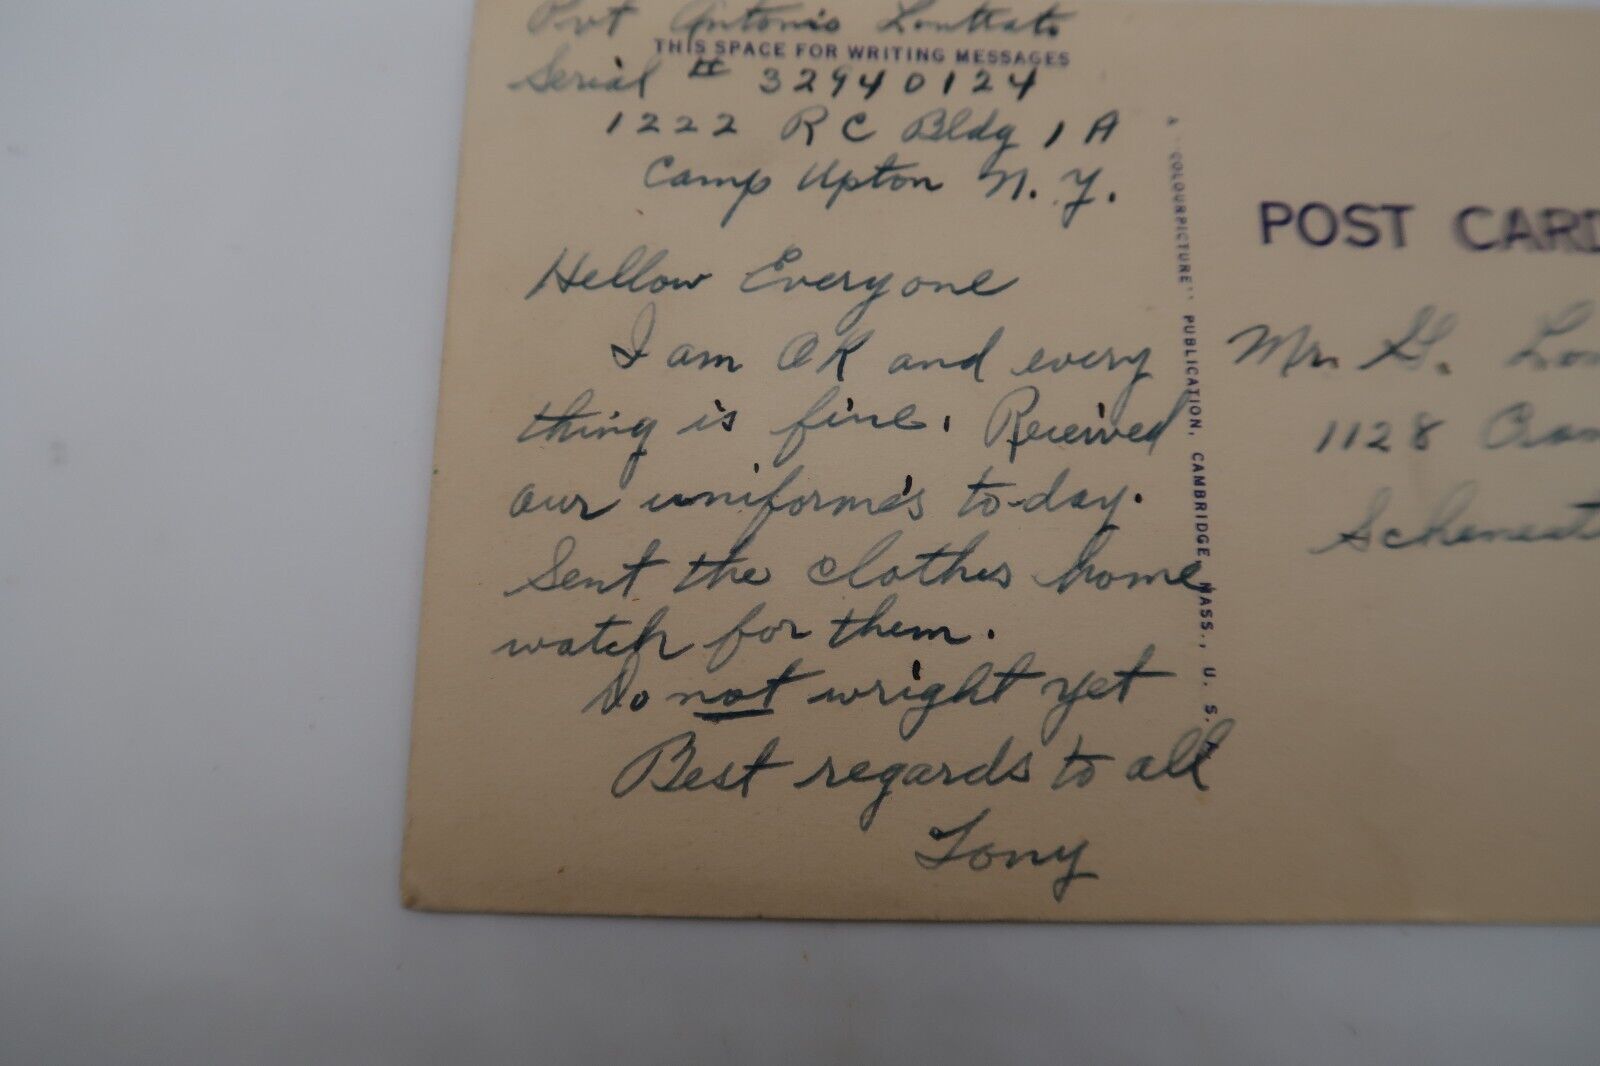 Pvt Antonio
THIS SPACE FOR WRITING MESSAGES
Serial # 32940124
1222 RC Bldg 1A
Camp Upton N.Y.
Hellow Everyone
I am OK and every
thing is fine. Received
our uniforme's to-day.
Sent the clothes home
watch for them.
Do not wright yet
Best regards to all
Tony
A "COLOURPICTURE" PUBLICATION, CAMBRIDGE, MASS., U. S. A.
POST CARD
Mr. G.
1128